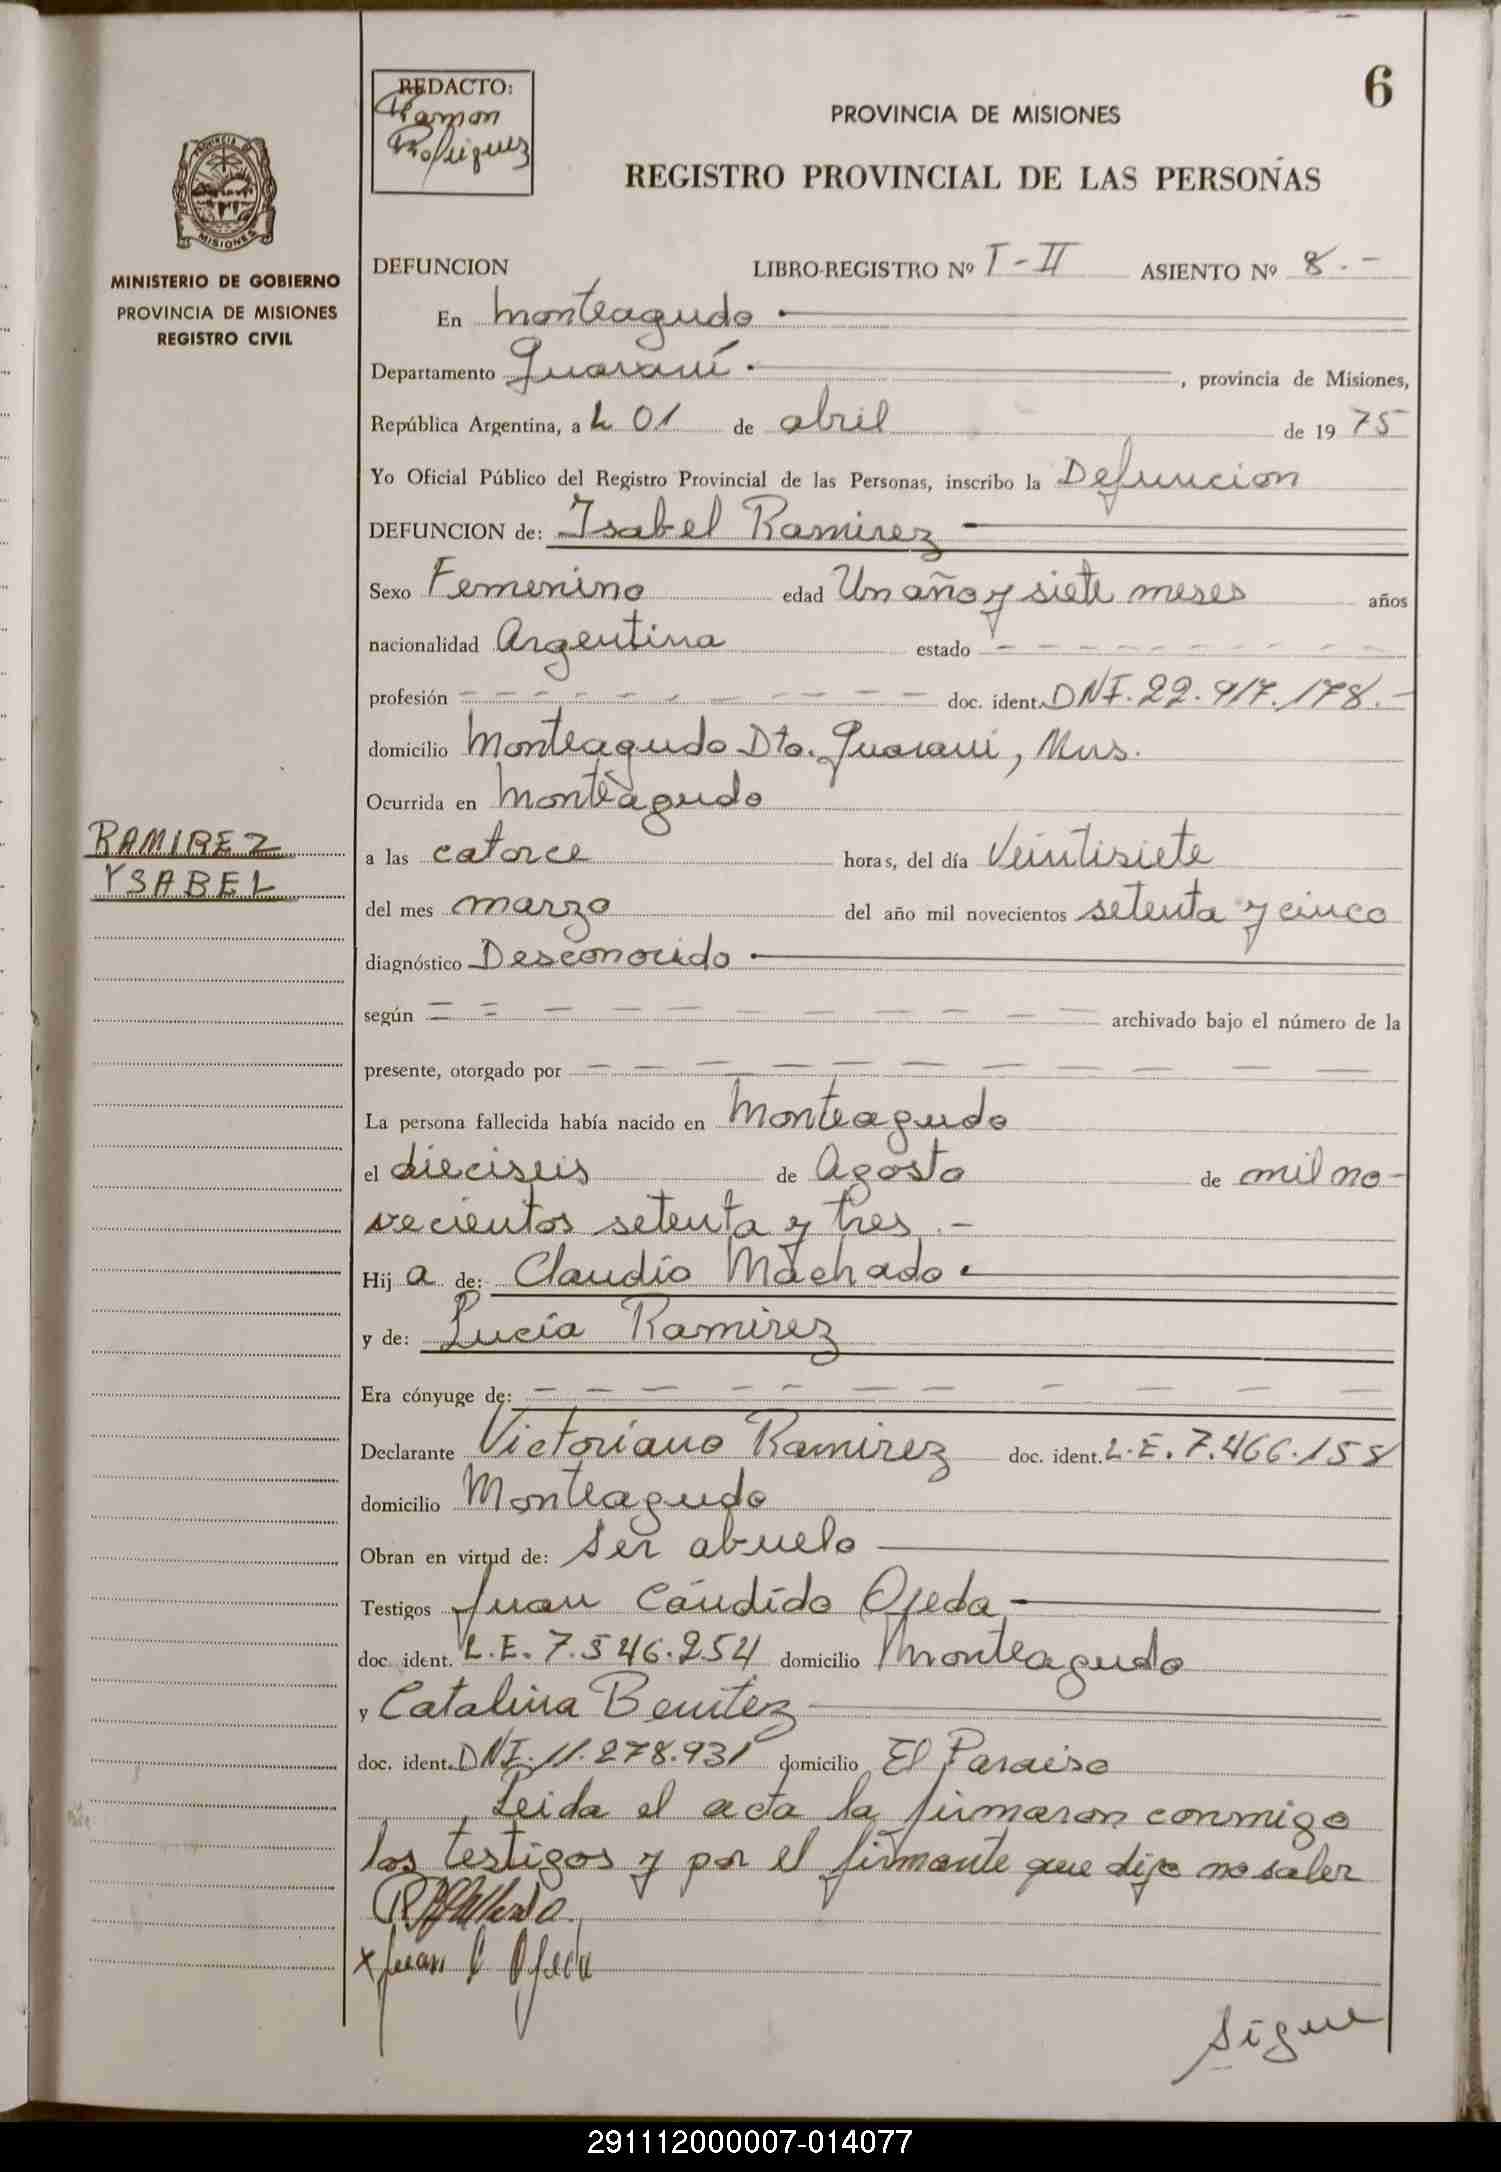 6
REDACTO:
Ramon
Rodriguez
PROVINCIA DE MISIONES
REGISTRO PROVINCIAL DE LAS PERSONAS
PROVINCIA DE
MISIONES
MINISTERIO DE GOBIERNO
PROVINCIA DE MISIONES
REGISTRO CIVIL
DEFUNCION LIBRO-REGISTRO Nº I-II ASIENTO Nº 8.-
En Monteagudo
Departamento Guaraní , provincia de Misiones,
República Argentina, a 01 de abril de 1975
Yo Oficial Público del Registro Provincial de las Personas, inscribo la Defuncion
DEFUNCION de: Isabel Ramirez
Sexo Femenino edad Un año y siete meses años
nacionalidad Argentina estado - - - - - - - - -
profesión - - - - - - - - - - doc. ident. DNI. 22.917.178.-
domicilio Monteagudo Dto. Guarani, Mns.
Ocurrida en Monteagudo
RAMIREZ
YSABEL
a las catorce horas, del día Veintisiete
del mes marzo del año mil novecientos setenta y cinco
diagnóstico Desconocido
según = = - - - - - - - - archivado bajo el número de la
presente, otorgado por - - - - - - - - - -
La persona fallecida había nacido en Monteagudo
el dieciseis de Agosto de mil no-
vecientos setenta y tres.-
Hij a de: Claudio Machado
y de: Lucía Ramirez
Era cónyuge de: - - - - - - - - - -
Declarante Victoriano Ramirez doc. ident. L.E. 7.466.158
domicilio Monteagudo
Obran en virtud de: ser abuelo
Testigos Juan Cándido Ojeda
doc. ident. L.E. 7.546.254 domicilio Monteagudo
y Catalina Benitez
doc. ident. DNI. 11.278.931 domicilio El Paraiso
Leida el acta la firmaron conmigo
los testigos y por el firmante que dijo no saber
x Juan C Ojeda
Sigue
291112000007-014077